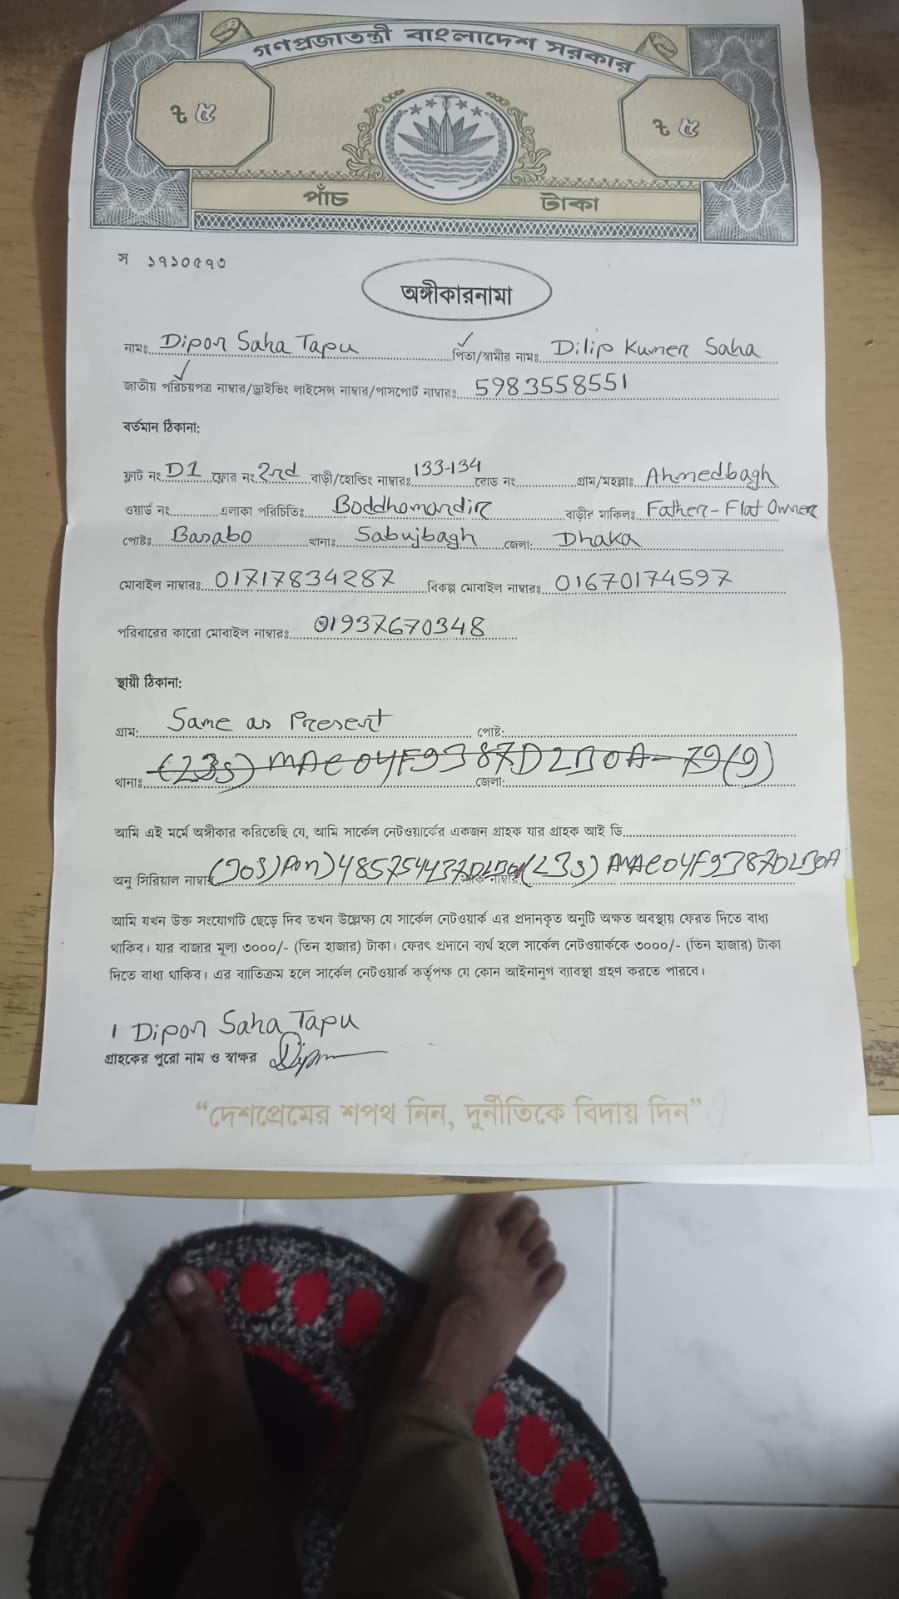 গণপ্রজাতন্ত্রী বাংলাদেশ সরকার
৳ ৫ ৳ ৫
পাঁচ টাকা
স ১৭১০৫৭৩
অঙ্গীকারনামা
নামঃ Dipon Saha Tapu পিতা/স্বামীর নামঃ Dilip Kumer Saha
জাতীয় পরিচয়পত্র নাম্বার/ড্রাইভিং লাইসেন্স নাম্বার/পাসপোর্ট নাম্বারঃ 5983558551
বর্তমান ঠিকানা:
ফ্লাট নং D1 ফ্লোর নং 2nd বাড়ী/হোল্ডিং নাম্বারঃ 133-134 রোড নং গ্রাম/মহল্লাঃ Ahmedbagh
ওয়ার্ড নং এলাকা পরিচিতিঃ Boddhomandir বাড়ীর মালিকঃ Father-Flat Owner
পোষ্টঃ Basabo থানাঃ Sabujbagh জেলা: Dhaka
মোবাইল নাম্বারঃ 01717834287 বিকল্প মোবাইল নাম্বারঃ 01670174597
পরিবারের কারো মোবাইল নাম্বারঃ 01937670348
স্থায়ী ঠিকানা:
গ্রাম: Same as Present পোষ্ট:
থানাঃ জেলা:
আমি এই মর্মে অঙ্গীকার করিতেছি যে, আমি সার্কেল নেটওয়ার্কের একজন গ্রাহক যার গ্রাহক আই ডি
অনু সিরিয়াল নাম্বার
আমি যখন উক্ত সংযোগটি ছেড়ে দিব তখন উল্লেক্ষ্য যে সার্কেল নেটওয়ার্ক এর প্রদানকৃত অনুটি অক্ষত অবস্থায় ফেরত দিতে বাধ্য
থাকিব। যার বাজার মূল্য ৩০০০/- (তিন হাজার) টাকা। ফেরৎ প্রদানে ব্যর্থ হলে সার্কেল নেটওয়ার্ককে ৩০০০/- (তিন হাজার) টাকা
দিতে বাধ্য থাকিব। এর ব্যতিক্রম হলে সার্কেল নেটওয়ার্ক কর্তৃপক্ষ যে কোন আইনানুগ ব্যাবস্থা গ্রহণ করতে পারবে।
1 Dipon Saha Tapu
গ্রাহকের পুরো নাম ও স্বাক্ষর
“দেশপ্রেমের শপথ নিন, দুর্নীতিকে বিদায় দিন”